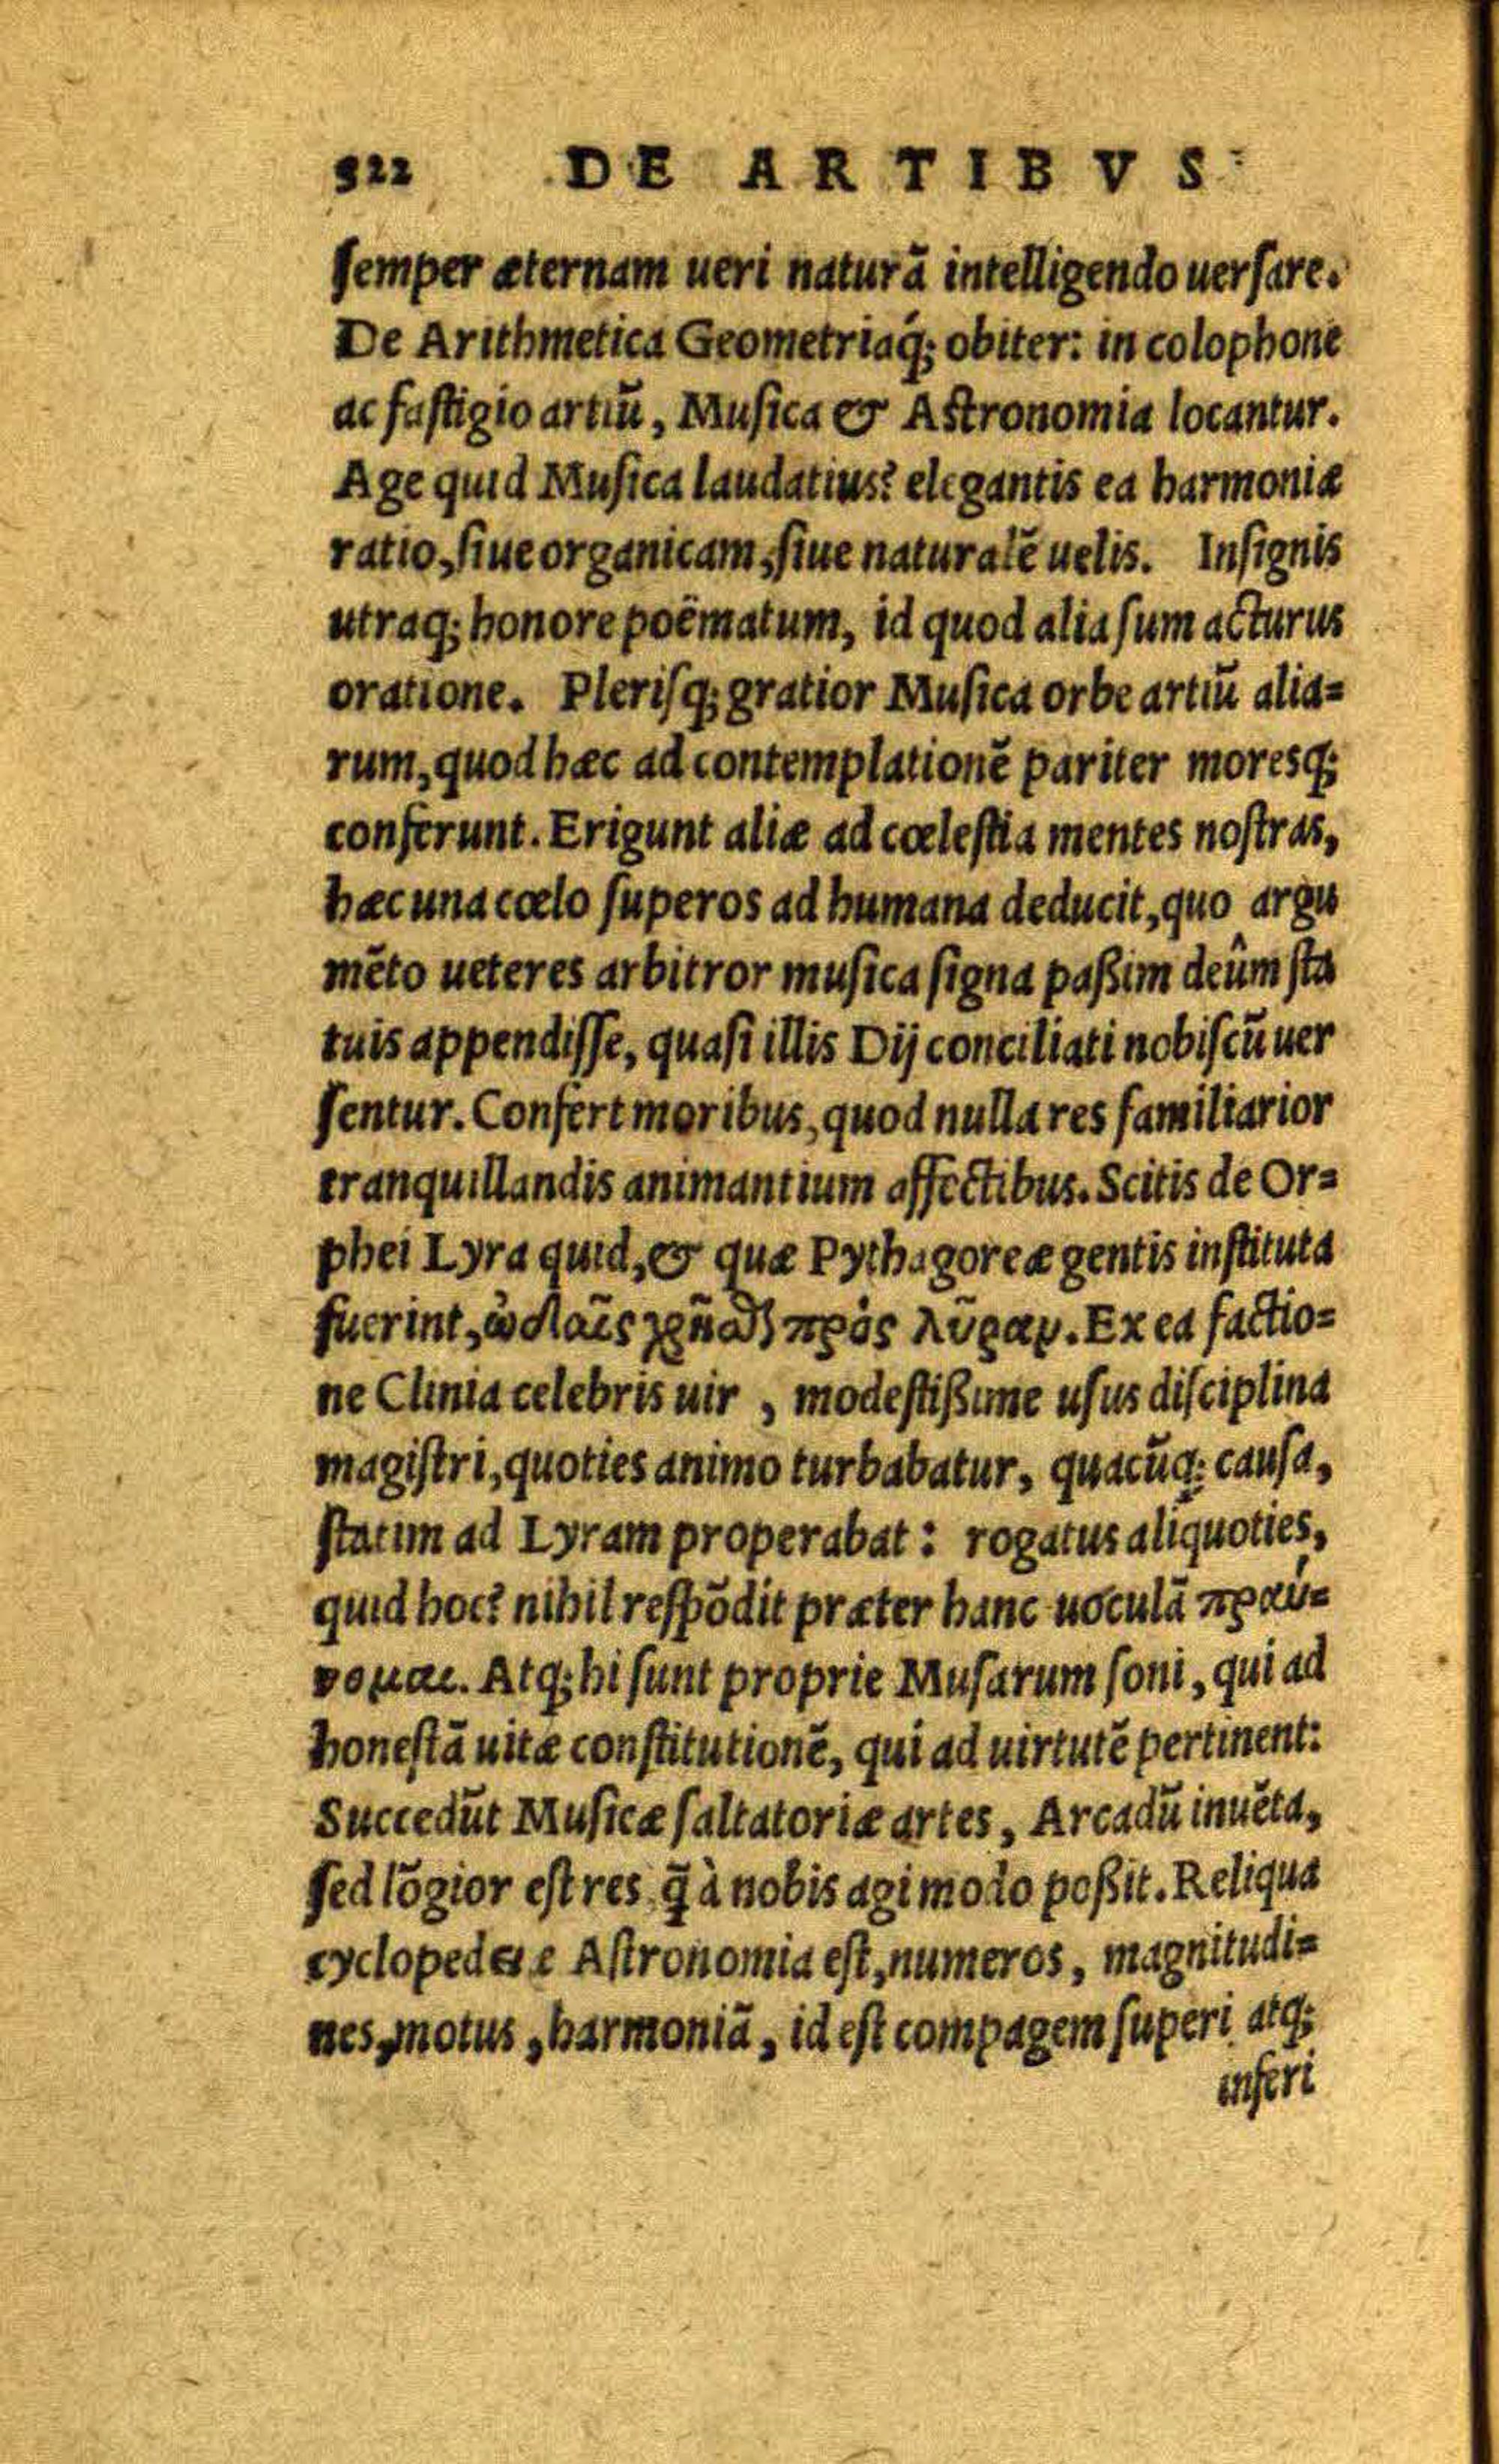 522 DE ARTIBVS
semper æternam ueri naturã intelligendo uersare.
De Arithmetica Geometriaq́; obiter: in colophone
ac fastigio artiũ, Musica & Astronomia locantur.
Age quid Musica laudatius? elegantis ea harmoniæ
ratio, siue organicam, siue naturalẽ uelis. Insignis
utraq; honore poëmatum, id quod alia sum acturus
oratione. Plerisq; gratior Musica orbe artiũ alia=
rum, quod hæc ad contemplationẽ pariter moresq;
conferunt. Erigunt aliæ ad cœlestia mentes nostras,
hæc una cœlo superos ad humana deducit, quo argu
mẽto ueteres arbitror musica signa paßim deûm sta
tuis appendisse, quasi illis Dij conciliati nobiscũ uer
sentur. Confert moribus, quod nulla res familiarior
tranquillandis animantium affectibus. Scitis de Or=
phei Lyra quid, & quæ Pythagoreæ gentis instituta
fuerint, ὠδαῖς χρῆσθαι πρὸς λῦραν. Ex ea factio=
ne Clinia celebris uir , modestißime usus disciplina
magistri, quoties animo turbabatur, quacũq; causa,
statim ad Lyram properabat: rogatus aliquoties,
quid hoc? nihil respõdit præter hanc uoculã πραύ=
νομαι. Atq; hi sunt proprie Musarum soni, qui ad
honestã uitæ constitutionẽ, qui ad uirtutẽ pertinent:
Succedũt Musicæ saltatoriæ artes, Arcadũ inuẽta,
sed lõgior est res q̃ à nobis agi modo poßit. Reliqua
cyclopedeiæ Astronomia est, numeros, magnitudi=
nes, motus, harmoniã, id est compagem superi atq;
inferi